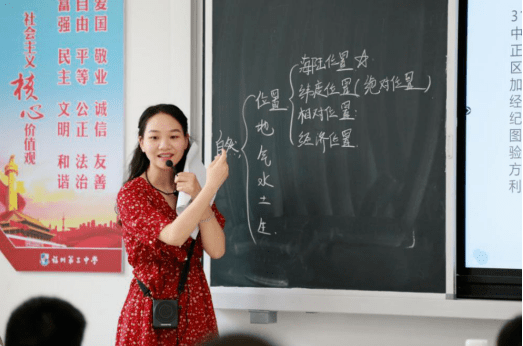 社会主义
核心
价值观
富强 民主 文明 和谐
自由 平等 公正 法治
爱国 敬业 诚信 友善
自然
位置
地
气
水
土
海陆位置☆
纬度位置(绝对位置)
相对位置
经济位置
中
正
区
加
经
纪
图
验
方
利